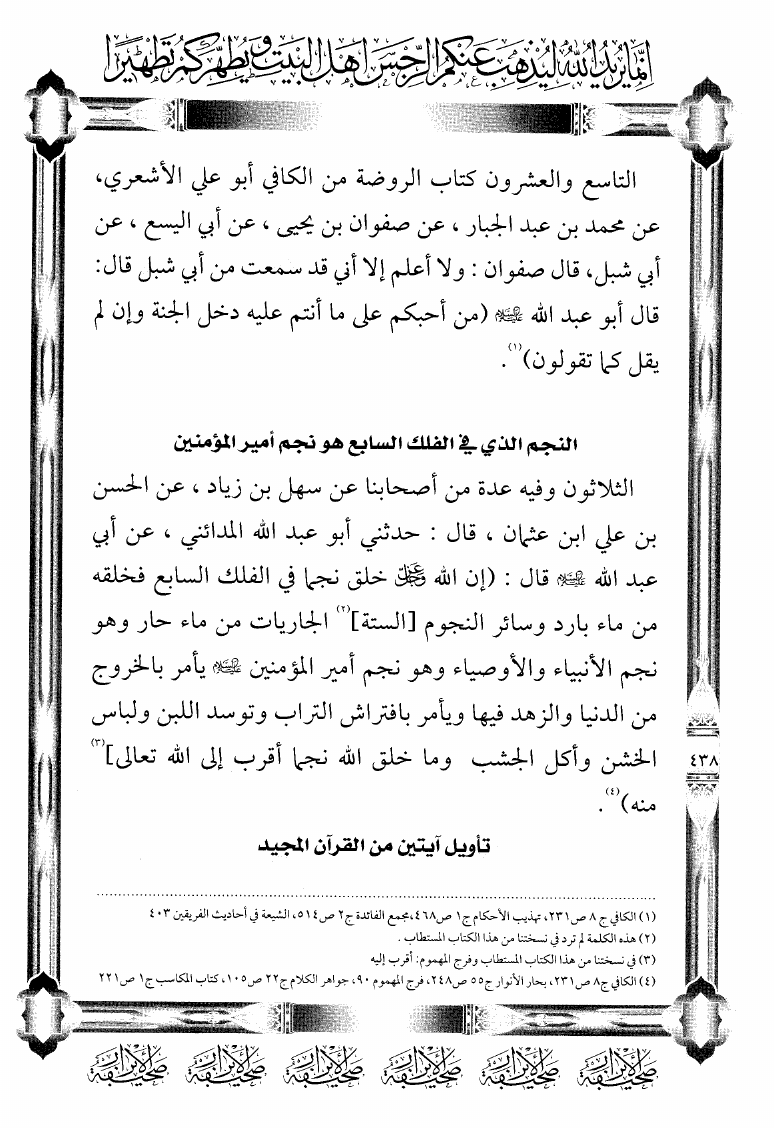 إنما يريد الله ليذهب عنكم الرجس أهل البيت ويطهركم تطهيرا
التاسع والعشرون كتاب الروضة من الكافي أبو علي الأشعري،
عن محمد بن عبد الجبار ، عن صفوان بن يحيى ، عن أبي اليسع ، عن
أبي شبل، قال صفوان : ولا أعلم إلا أني قد سمعت من أبي شبل قال:
قال أبو عبد الله عليه السلام (من أحبكم على ما أنتم عليه دخل الجنة وإن لم
يقل كما تقولون)(١) .
النجم الذي في الفلك السابع هو نجم أمير المؤمنين
الثلاثون وفيه عدة من أصحابنا عن سهل بن زياد ، عن الحسن
بن علي ابن عثمان ، قال : حدثني أبو عبد الله المدائني ، عن أبي
عبد الله عليه السلام قال : (إن الله عز وجل خلق نجما في الفلك السابع فخلقه
من ماء بارد وسائر النجوم [الستة](٢) الجاريات من ماء حار وهو
نجم الأنبياء والأوصياء وهو نجم أمير المؤمنين عليه السلام يأمر بالخروج
من الدنيا والزهد فيها ويأمر بافتراش التراب وتوسد اللبن ولباس
الخشن وأكل الجشب وما خلق الله نجما أقرب إلى الله تعالى](٣)
منه)(٤).
تأويل آيتين من القرآن المجيد
٤٣٨
(١) الكافي ج ٨ ص٢٣١، تهذيب الأحكام ج١ ص٤٦٨،مجمع الفائدة ج٢ ص٥١٤، الشيعة في أحاديث الفريقين ٤٠٣
(٢) هذه الكلمة لم ترد في نسختنا من هذا الكتاب المستطاب .
(٣) في نسختنا من هذا الكتاب المستطاب وفرج المهموم: أقرب إليه
(٤) الكافي ج٨ ص٢٣١، بحار الأنوار ج٥٥ ص٢٤٨، فرج المهموم ٩٠، جواهر الكلام ج٢٢ ص١٠٥، كتاب المكاسب ج١ ص٢٢١
صحيفة الأبرار صحيفة الأبرار صحيفة الأبرار صحيفة الأبرار صحيفة الأبرار صحيفة الأبرار